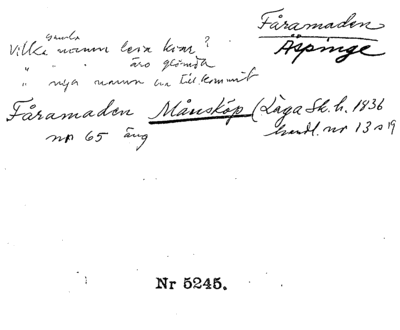 Fåramaden
Äspinge
gamla
Vilka namn leva kvar?
" " äro glömda
" nya namn ha tillkommit
Fåramaden Månsköp (Laga Sk. h. 1836
nr 65 äng handl. nr 13 s 19
Nr 5245.